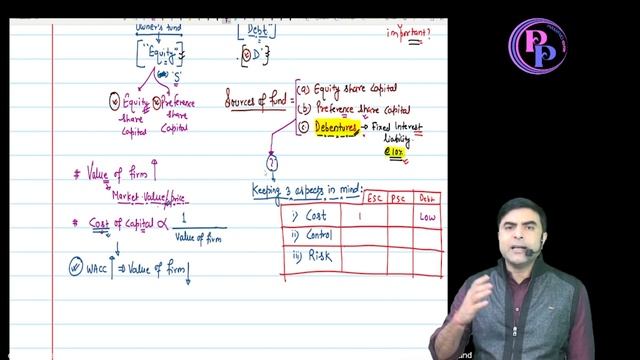 Owner's fund
["Equity"]
'S'
Equity share capital
Preference share capital
[Debt]
{'D'}
important?
Sources of fund =
(a) Equity share capital
(b) Preference share capital
(c) Debentures → Fixed Interest liability @10%
?
# Value of firm ↑
Market value/price
# Cost of capital ∝ 1 / Value of firm
WACC ↑ ⇒ Value of firm ↓
Keeping 3 aspects in mind:
ESC PSC Debt
i) Cost 1 Low
ii) Control
iii) Risk
PP